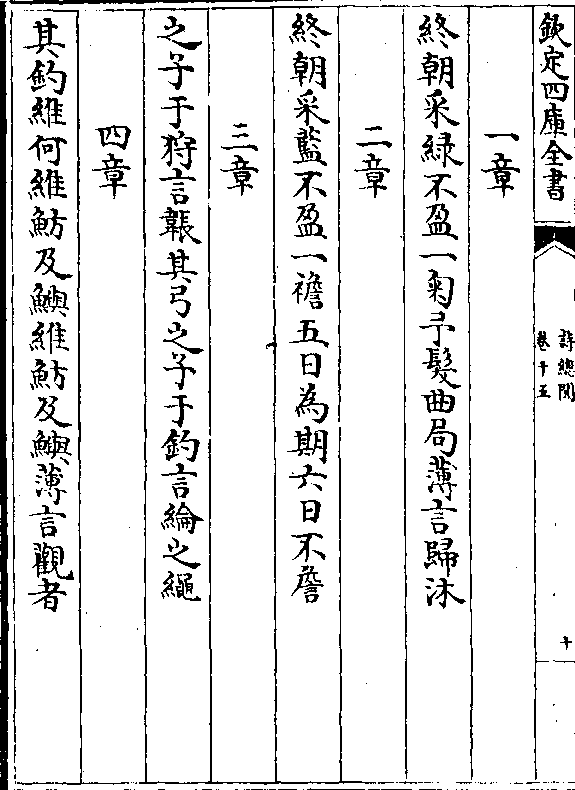 欽定四庫全書
詩總聞
卷十五
十
一章
終朝采緑不盈一匊予髮曲局薄言歸沐
二章
終朝采藍不盈一襜五日為期六日不詹
三章
之子于狩言韔其弓之子于釣言綸之繩
四章
其釣維何維魴及鱮維魴及鱮薄言觀者